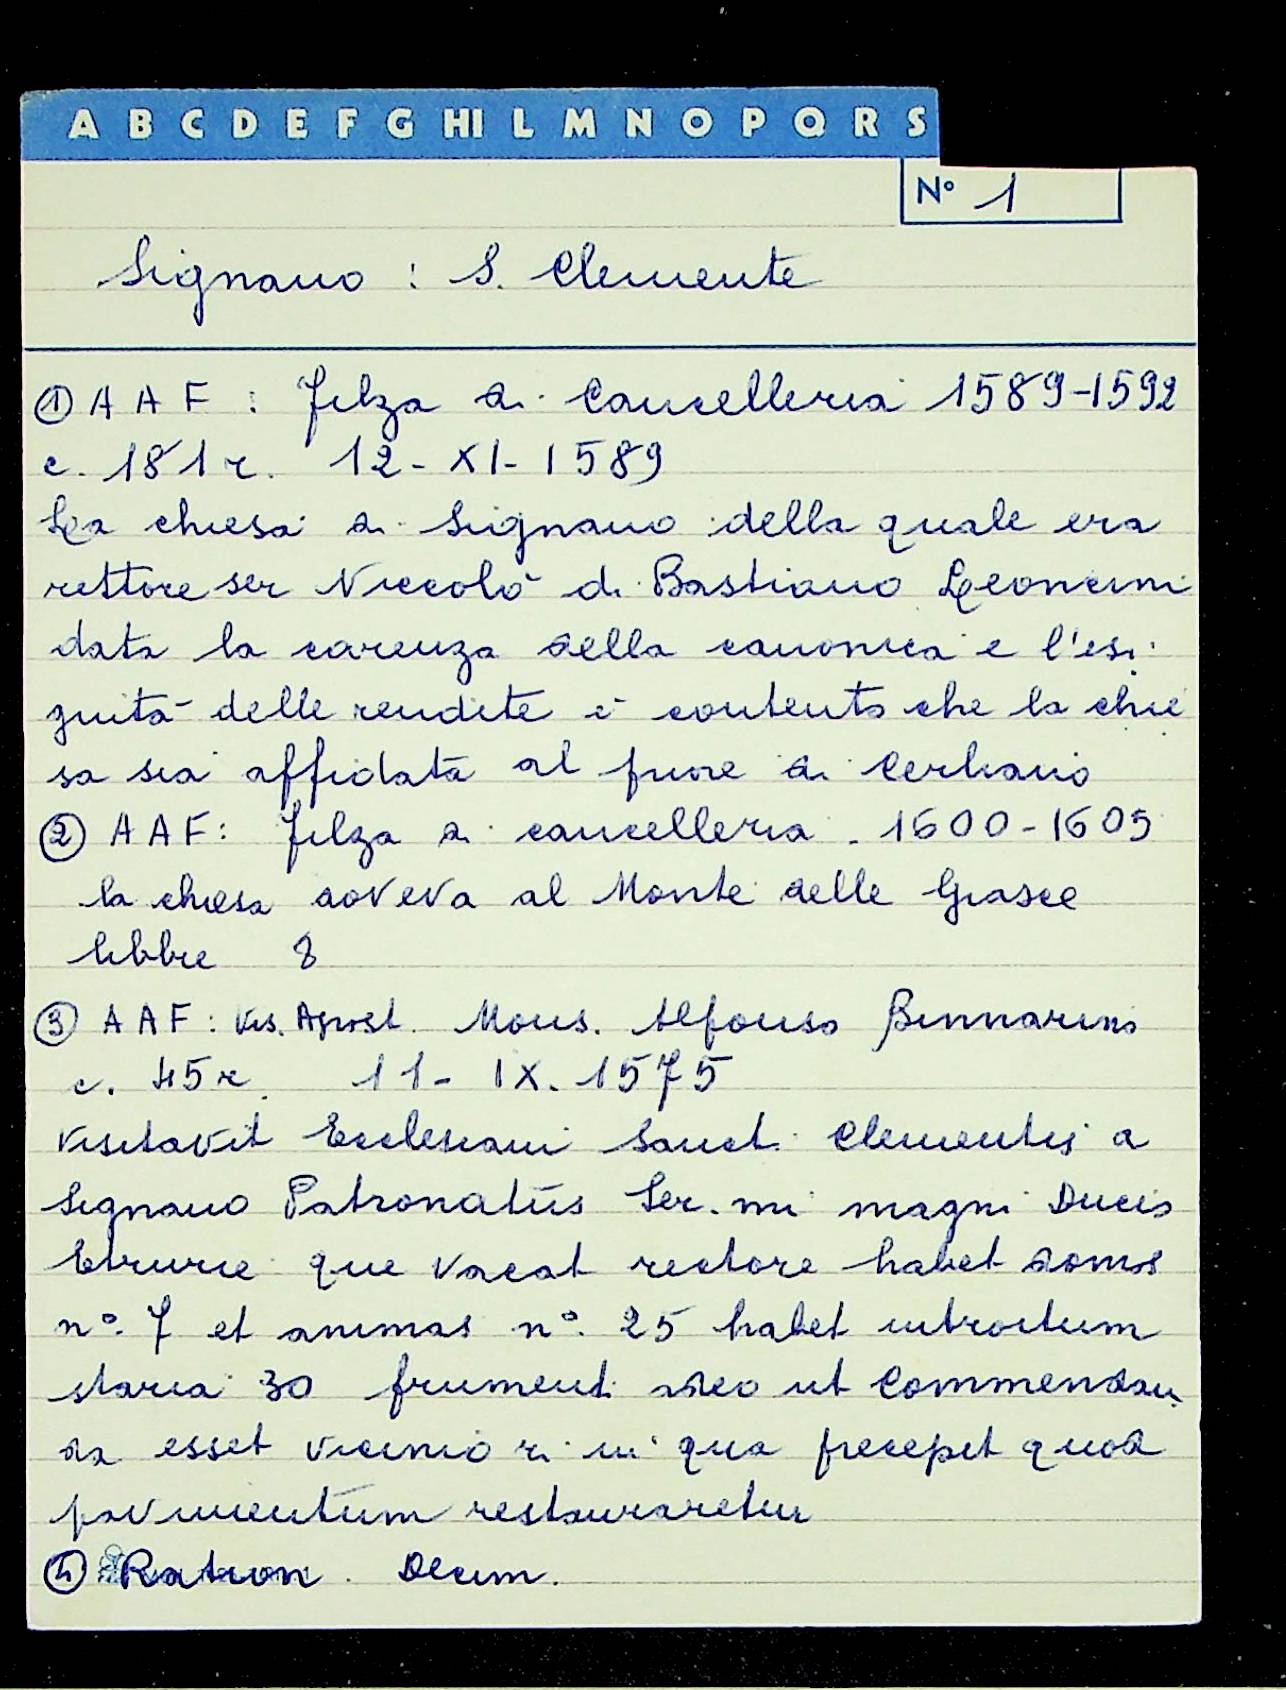 A B C D E F G HI L M N O P Q R S
N° 1
Signano : S. Clemente
① A A F : Filza di Cancelleria 1589-1592
c. 181 r. 12 - XI - 1589
La chiesa di Signano della quale era
rettore ser Niccolò di Bastiano Leoncini
data la carenza della canonica e l'esi
guità delle rendite è contento che la chie
sa sia affidata al priore di Cerliano
② A A F : filza di cancelleria . 1600 - 1605
la chiesa doveva al Monte delle Grasce
libbre 8
③ A A F : Vis. Apost. Mons. Alfonso Binnarino
c. 45 r. 11 - IX. 1575
Visitavit Ecclesiam Sancti Clementis a
Signano Patronatus Ser.mi magni Ducis
Etrurie que vacat rectore habet domos
n°. 7 et animas n°. 25 habet introitum
staria 30 frumenti adeo ut Commendan
da esset viciniori in qua precepit quod
pavimentum restauraretur
④ Ration. Decim.